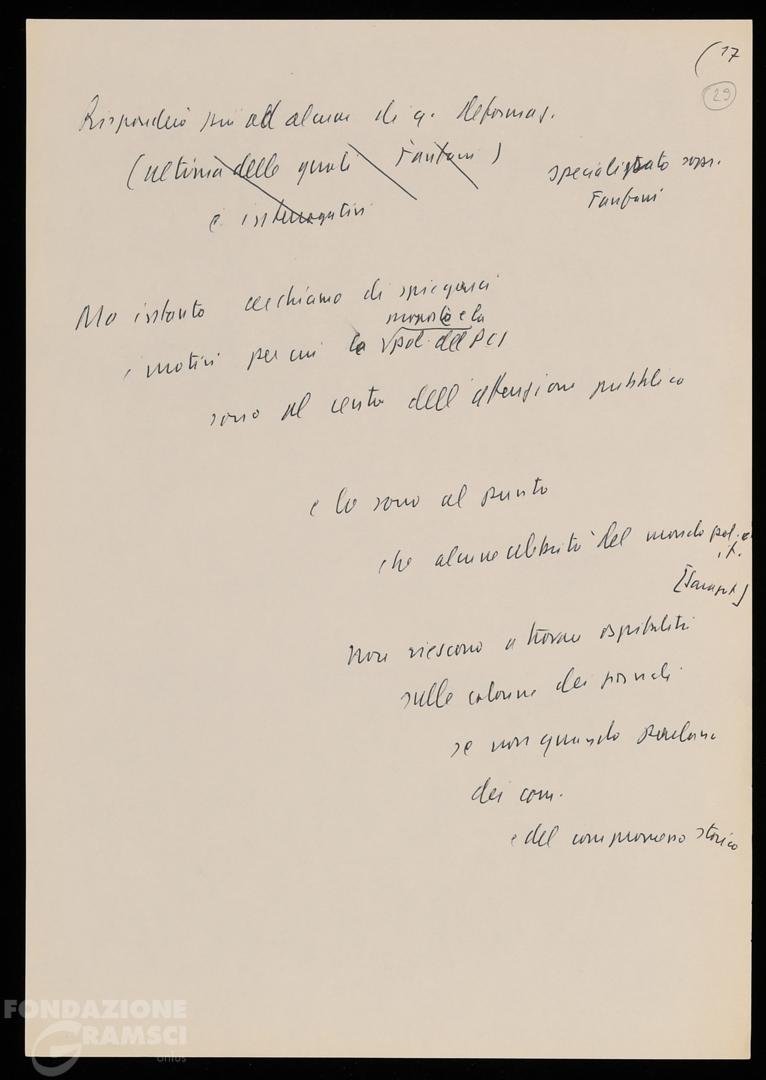 (17
29
Risponderò poi ad alcune di q. deformaz.
(ultima delle quali Fanfani)
specializzato sopr.
Fanfani
e interrogativi
Ma intanto cerchiamo di spiegarci
proposta e la
i motivi per cui la pol. del PCI
sono al centro dell'attenzione pubblica
e lo sono al punto
che alcune celebrità del mondo pol.
it.
[Saragat]
non riescono a trovare ospitalità
sulle colonne dei giornali
se non quando parlano
dei com.
e del compromesso storico
FONDAZIONE
GRAMSCI
onlus